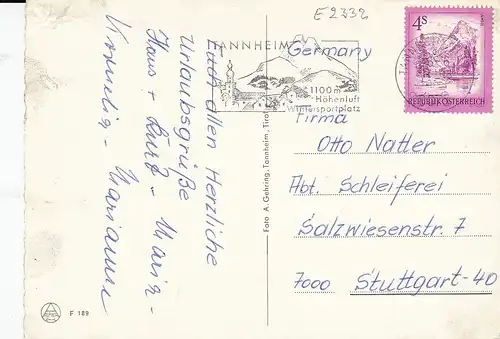 E 2332
ANNHEIM
1100 m
Höhenluft
Wintersportplatz
4S
REPUBLIK ÖSTERREICH
Euch allen Herzliche
Urlaubsgrüße
Hans + Kurt - Maria -
Kornelia - Marianne
Foto A. Gehring, Tannheim, Tirol
Germany
Firma
Otto Natter
Abt. Schleiferei
Salzwiesenstr. 7
7000 Stuttgart-40
F 189